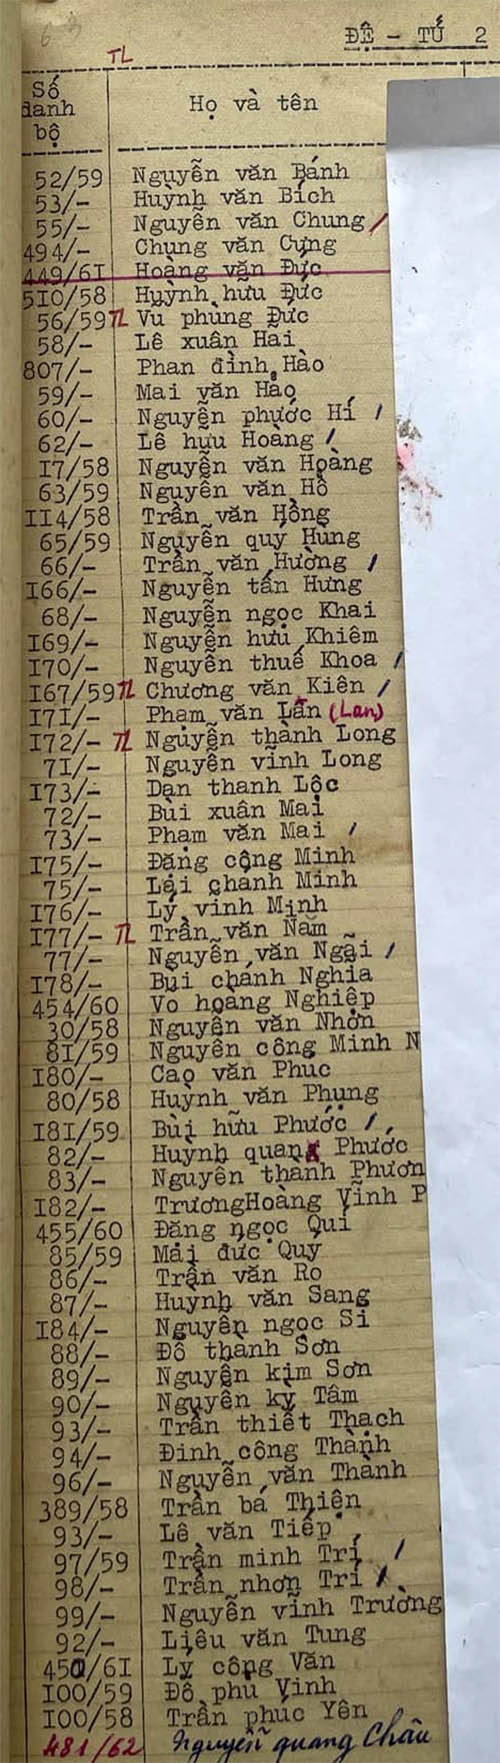 ĐỆ - TỨ 2
TL
Số danh bộ Họ và tên
52/59 Nguyễn văn Bánh
53/- Huỳnh văn Bích
55/- Nguyễn văn Chung /
494/- Chung văn Cựng
449/6I Hoàng văn Đức
5I0/58 Huỳnh hưu Đức
56/59 TL Vu phùng Đức
58/- Lê xuân Hai
807/- Phan đình Hào
59/- Mai văn Hao
60/- Nguyễn phước Hí /
62/- Lê hưu Hoàng /
I7/58 Nguyễn văn Hoàng
63/59 Nguyễn văn Hồ
II4/58 Trần văn Hồng
65/59 Nguyễn quy Hung
66/- Trần văn Hường /
I66/- Nguyễn tấn Hưng
68/- Nguyễn ngọc Khai
I69/- Nguyễn hưu Khiêm
I70/- Nguyễn thuế Khoa /
I67/59 TL Chương văn Kiên /
I7I/- Phạm văn Lần (Lan)
I72/- TL Nguyễn thành Long
7I/- Nguyễn vĩnh Long
I73/- Dan thanh Lộc
72/- Bùi xuân Mai
73/- Phạm văn Mai /
I75/- Đặng công Minh
75/- Lại chanh Minh
I76/- Lý vinh Minh
I77/- TL Trần văn Năm
77/- Nguyễn văn Ngãi /
I78/- Bùi chanh Nghĩa
454/60 Vo hoàng Nghiệp
30/58 Nguyễn văn Nhơn
8I/59 Nguyễn công Minh N
I80/- Cao văn Phuc
80/58 Huỳnh văn Phụng
I8I/59 Bùi hữu Phước /
82/- Huynh quang Phước
83/- Nguyễn thành Phươn
I82/- TrươngHoàng Vĩnh P
455/60 Đặng ngọc Qui
85/59 Mai đưc Quy
86/- Trần văn Ro
87/- Huynh văn Sang
I84/- Nguyễn ngọc Si
88/- Đô thành Sơn
89/- Nguyễn kim Sơn
90/- Nguyễn kỳ Tâm
93/- Trần thiết Thạch
94/- Đinh công Thành
96/- Nguyễn văn Thành
389/58 Trần bá Thiện
93/- Lê văn Tiếp
97/59 Trần minh Trí /
98/- Trần nhơn Trí /
99/- Nguyễn vĩnh Trường
92/- Liêu văn Tung
450/6I Lý công Văn
I00/59 Đô phu Vinh
I00/58 Trần phuc Yên
481/62 Nguyễn quang Châu